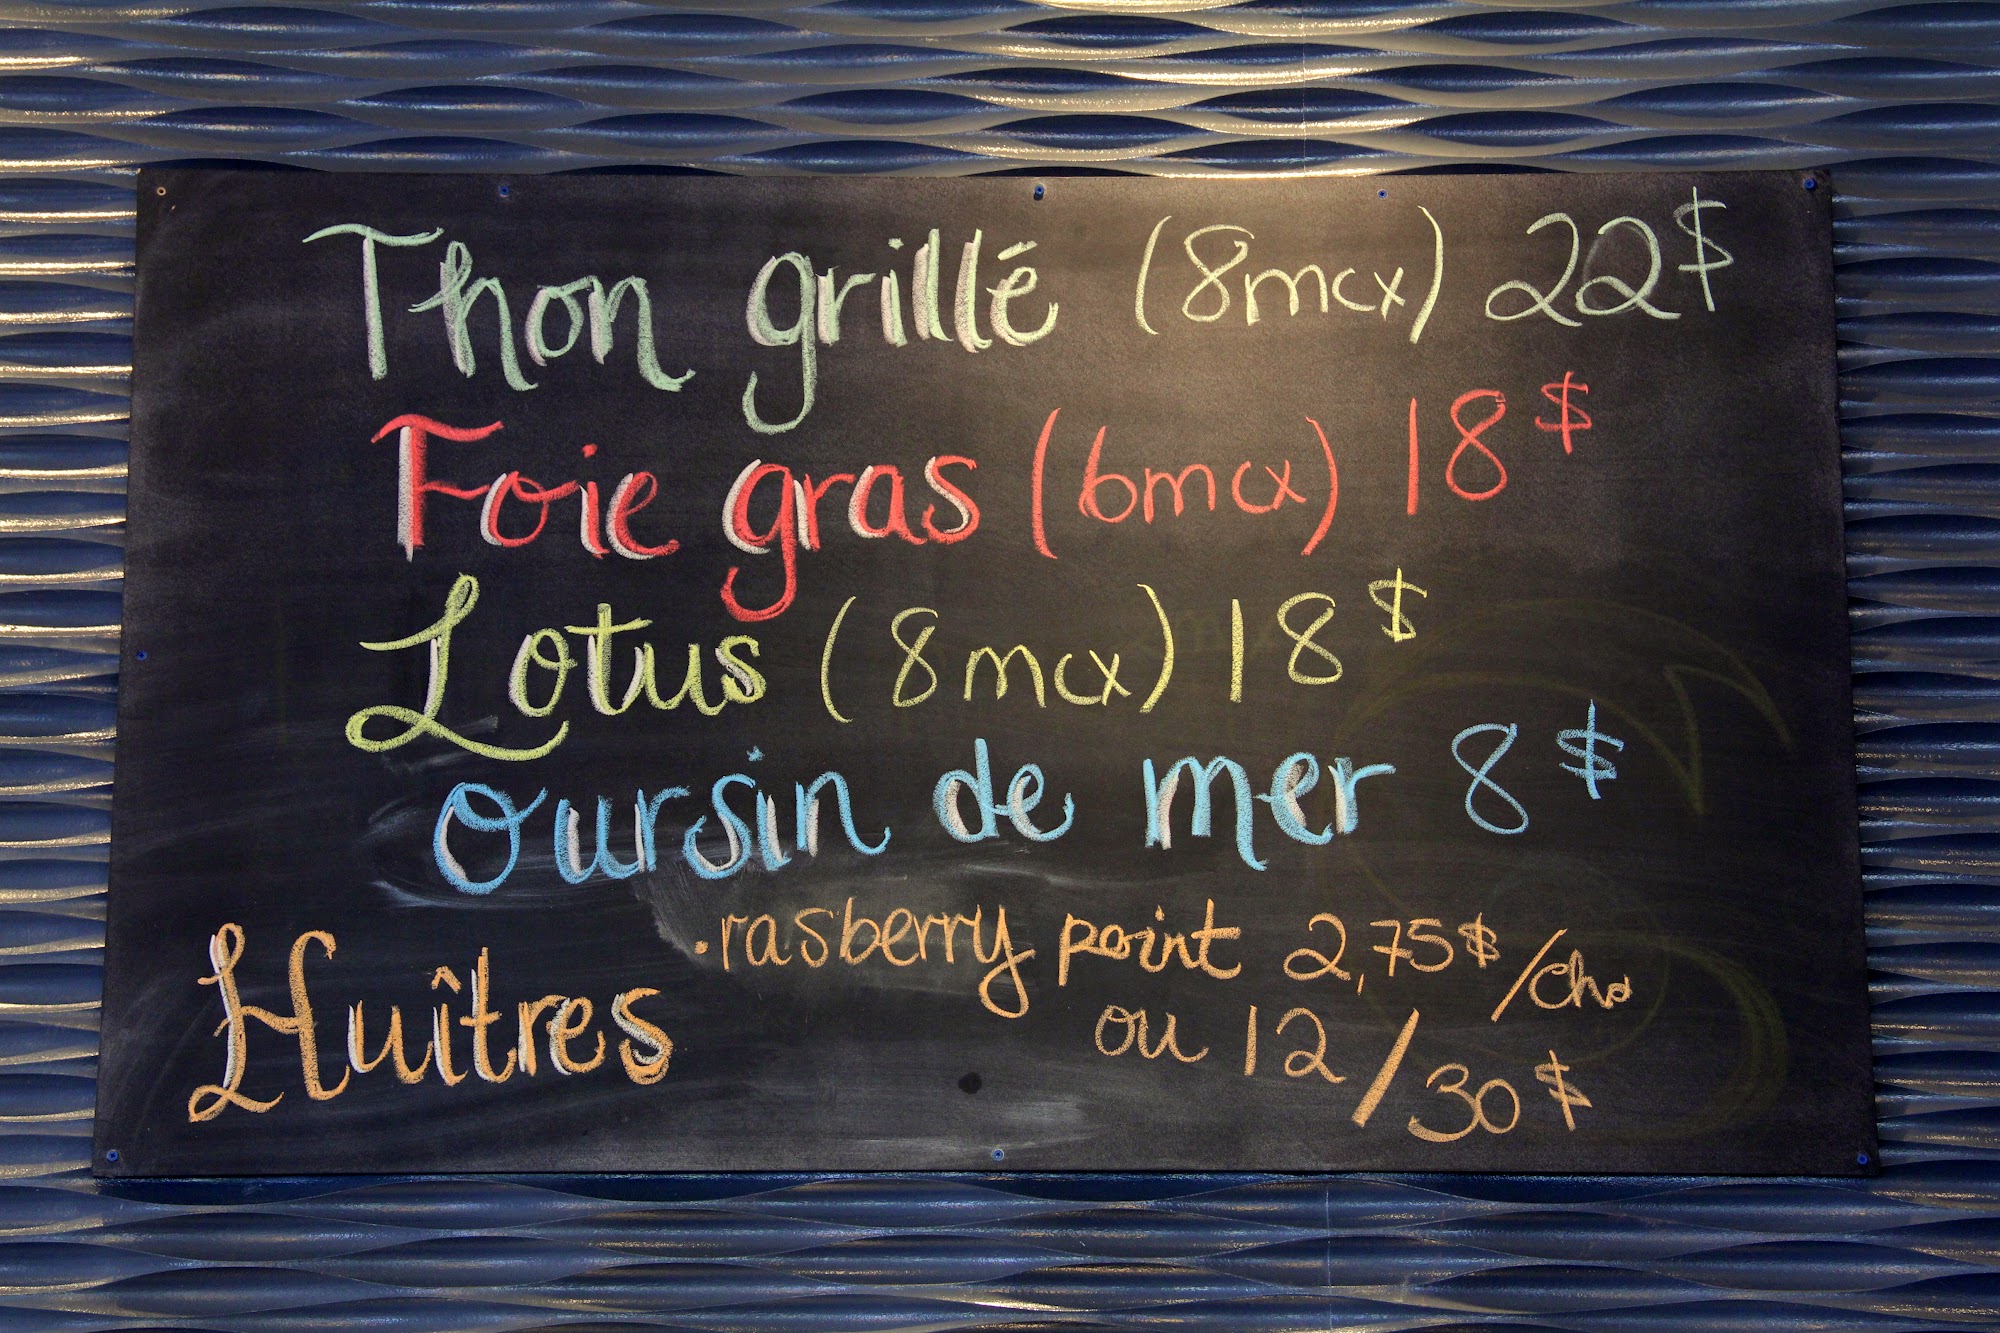 Thon grillé (8mcx) 22$
Foie gras (6mcx) 18$
Lotus (8mcx) 18$
oursin de mer 8$
Huîtres .rasberry point 2,75$/cha
ou 12/30$